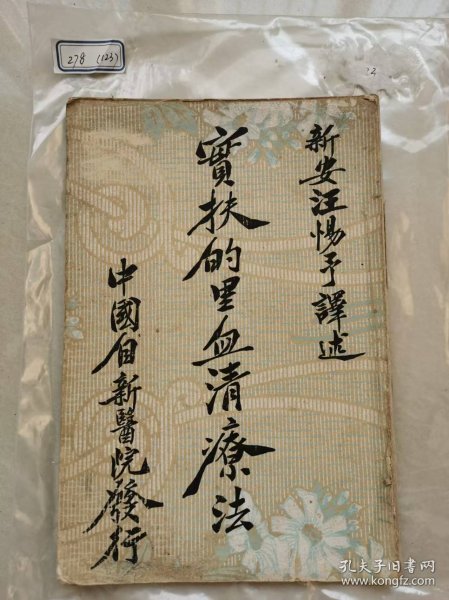 278 (123)
新安汪惕予譯述
實扶的里血清療法
中國自新醫院發行
孔夫子旧书网
www.kongfz.com